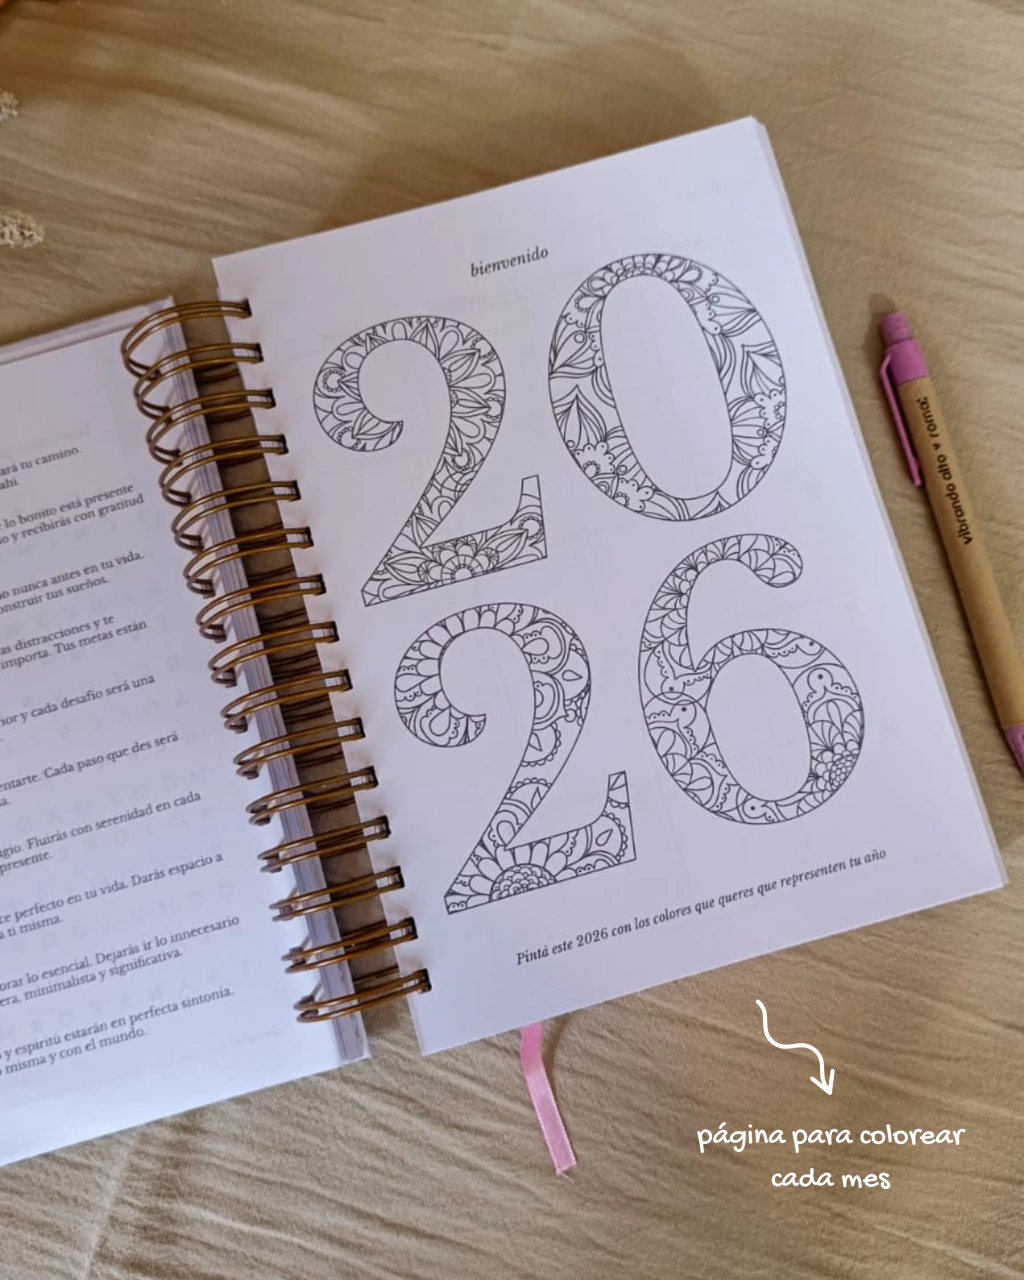 ará tu camino.
ahí.
lo bonito está presente
o y recibirás con gratitud
o nunca antes en tu vida.
onstruir tus sueños.
as distracciones y te
importa. Tus metas están
ior y cada desafío será una
entarte. Cada paso que des será
a.
gio. Fluirás con serenidad en cada
presente.
ce perfecto en tu vida. Darás espacio a
a ti misma.
orar lo esencial. Dejarás ir lo innecesario
era, minimalista y significativa.
y espíritu estarán en perfecta sintonía.
misma y con el mundo.
bienvenido
20
26
Pintá este 2026 con los colores que queres que representen tu año
vibrando alto v roma;
página para colorear
cada mes